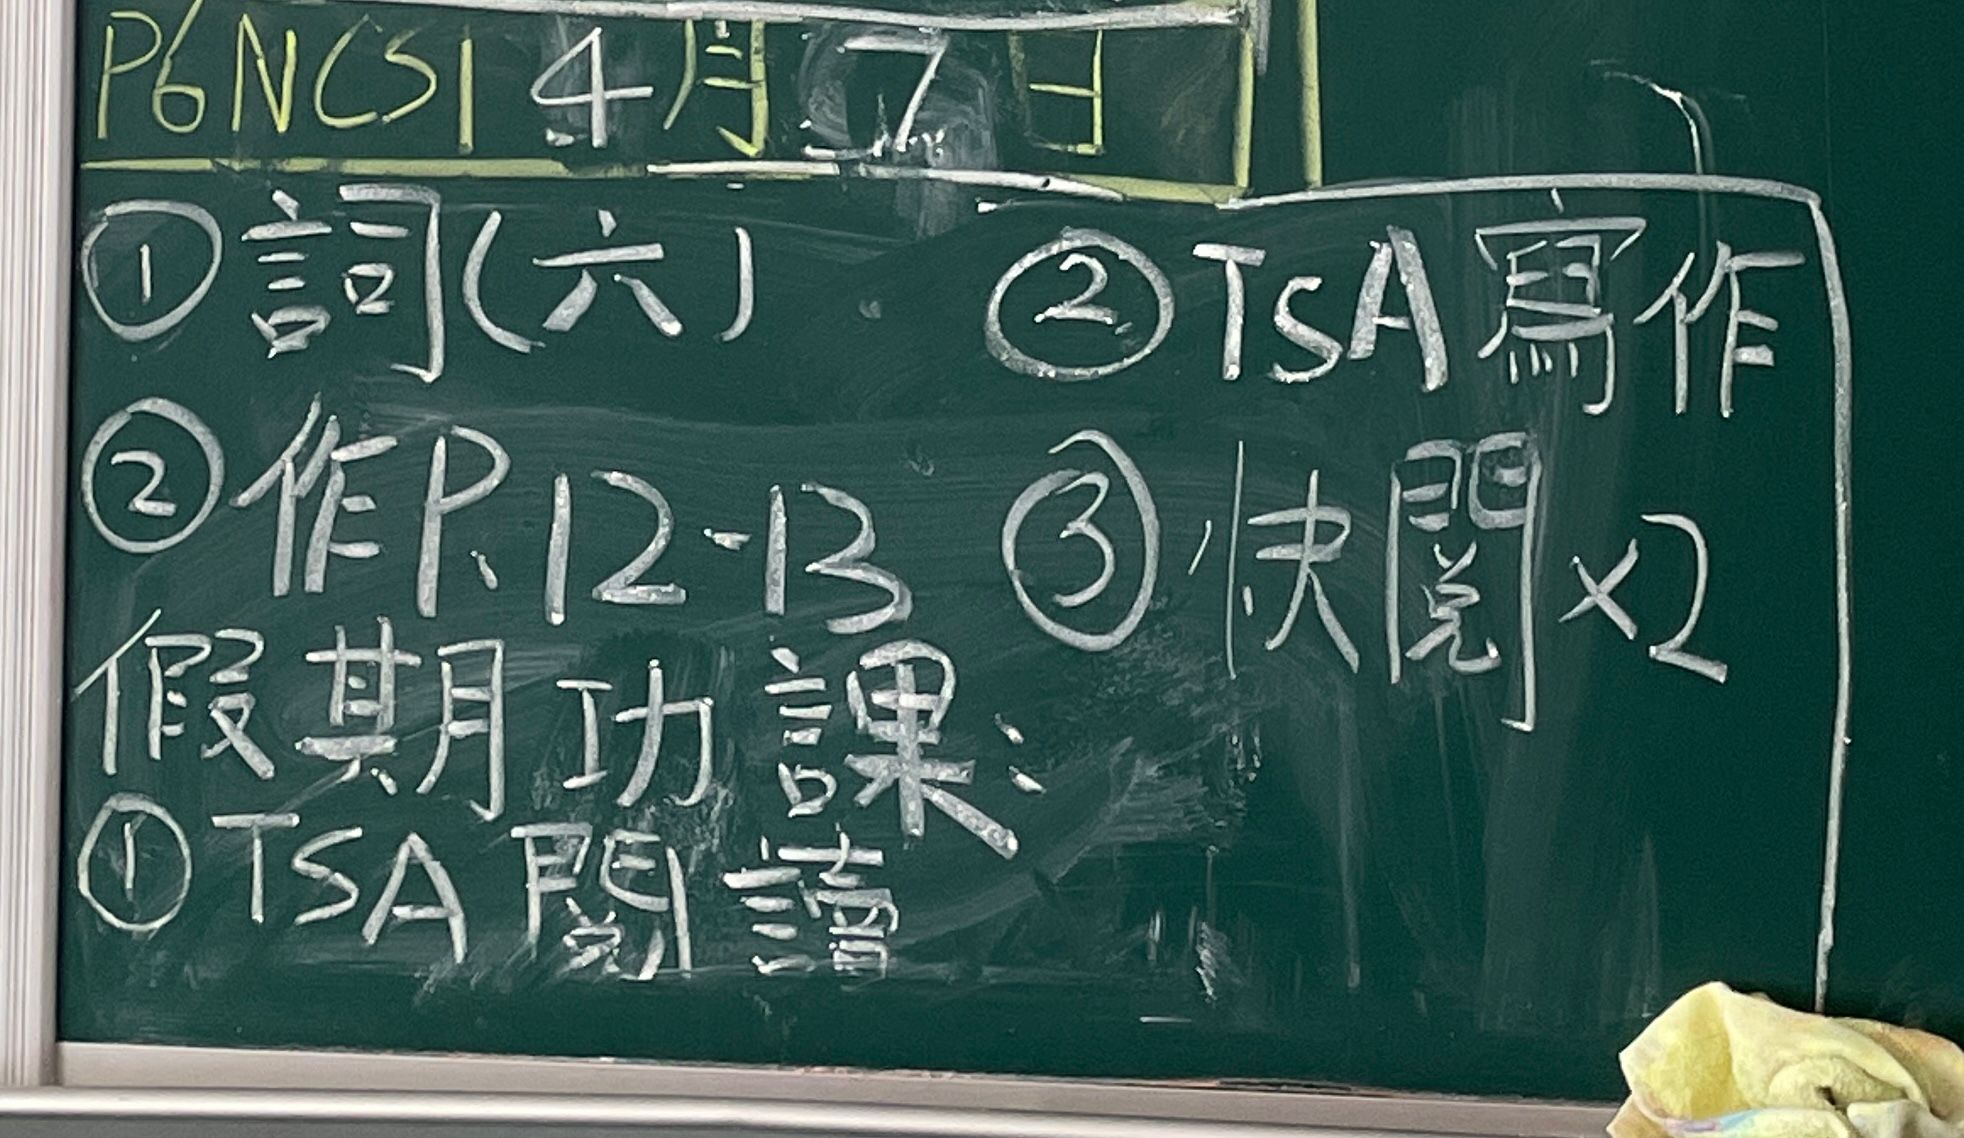 P6NCS1 4月7日
①詞(六)
②作P.12-13
假期功課:
①TSA閱讀
②TSA寫作
③快閱x2